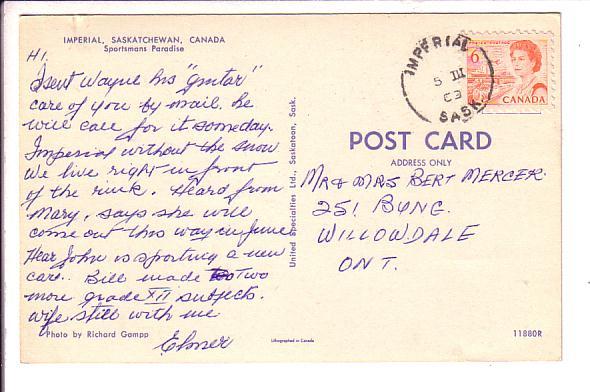 IMPERIAL, SASKATCHEWAN, CANADA
Sportsmans Paradise
HI,
I sent Wayne his "guitar"
care of you by mail. he
will call for it someday.
Imperial without the snow
We live right in front
of the rink. Heard from
Mary, says she will
come out this way in June
Hear John is sporting a new
car.. Bill made two
more grade XII subjects.
wife still with me
Elmer
Photo by Richard Gampp
United Specialties Ltd., Saskatoon, Sask.
Lithographed in Canada
IMPERIAL
5 III
SASK.
6
CANADA
POST CARD
ADDRESS ONLY
MR & MRS BERT MERCER
251 BYNG.
WILLOWDALE
ONT.
11880R